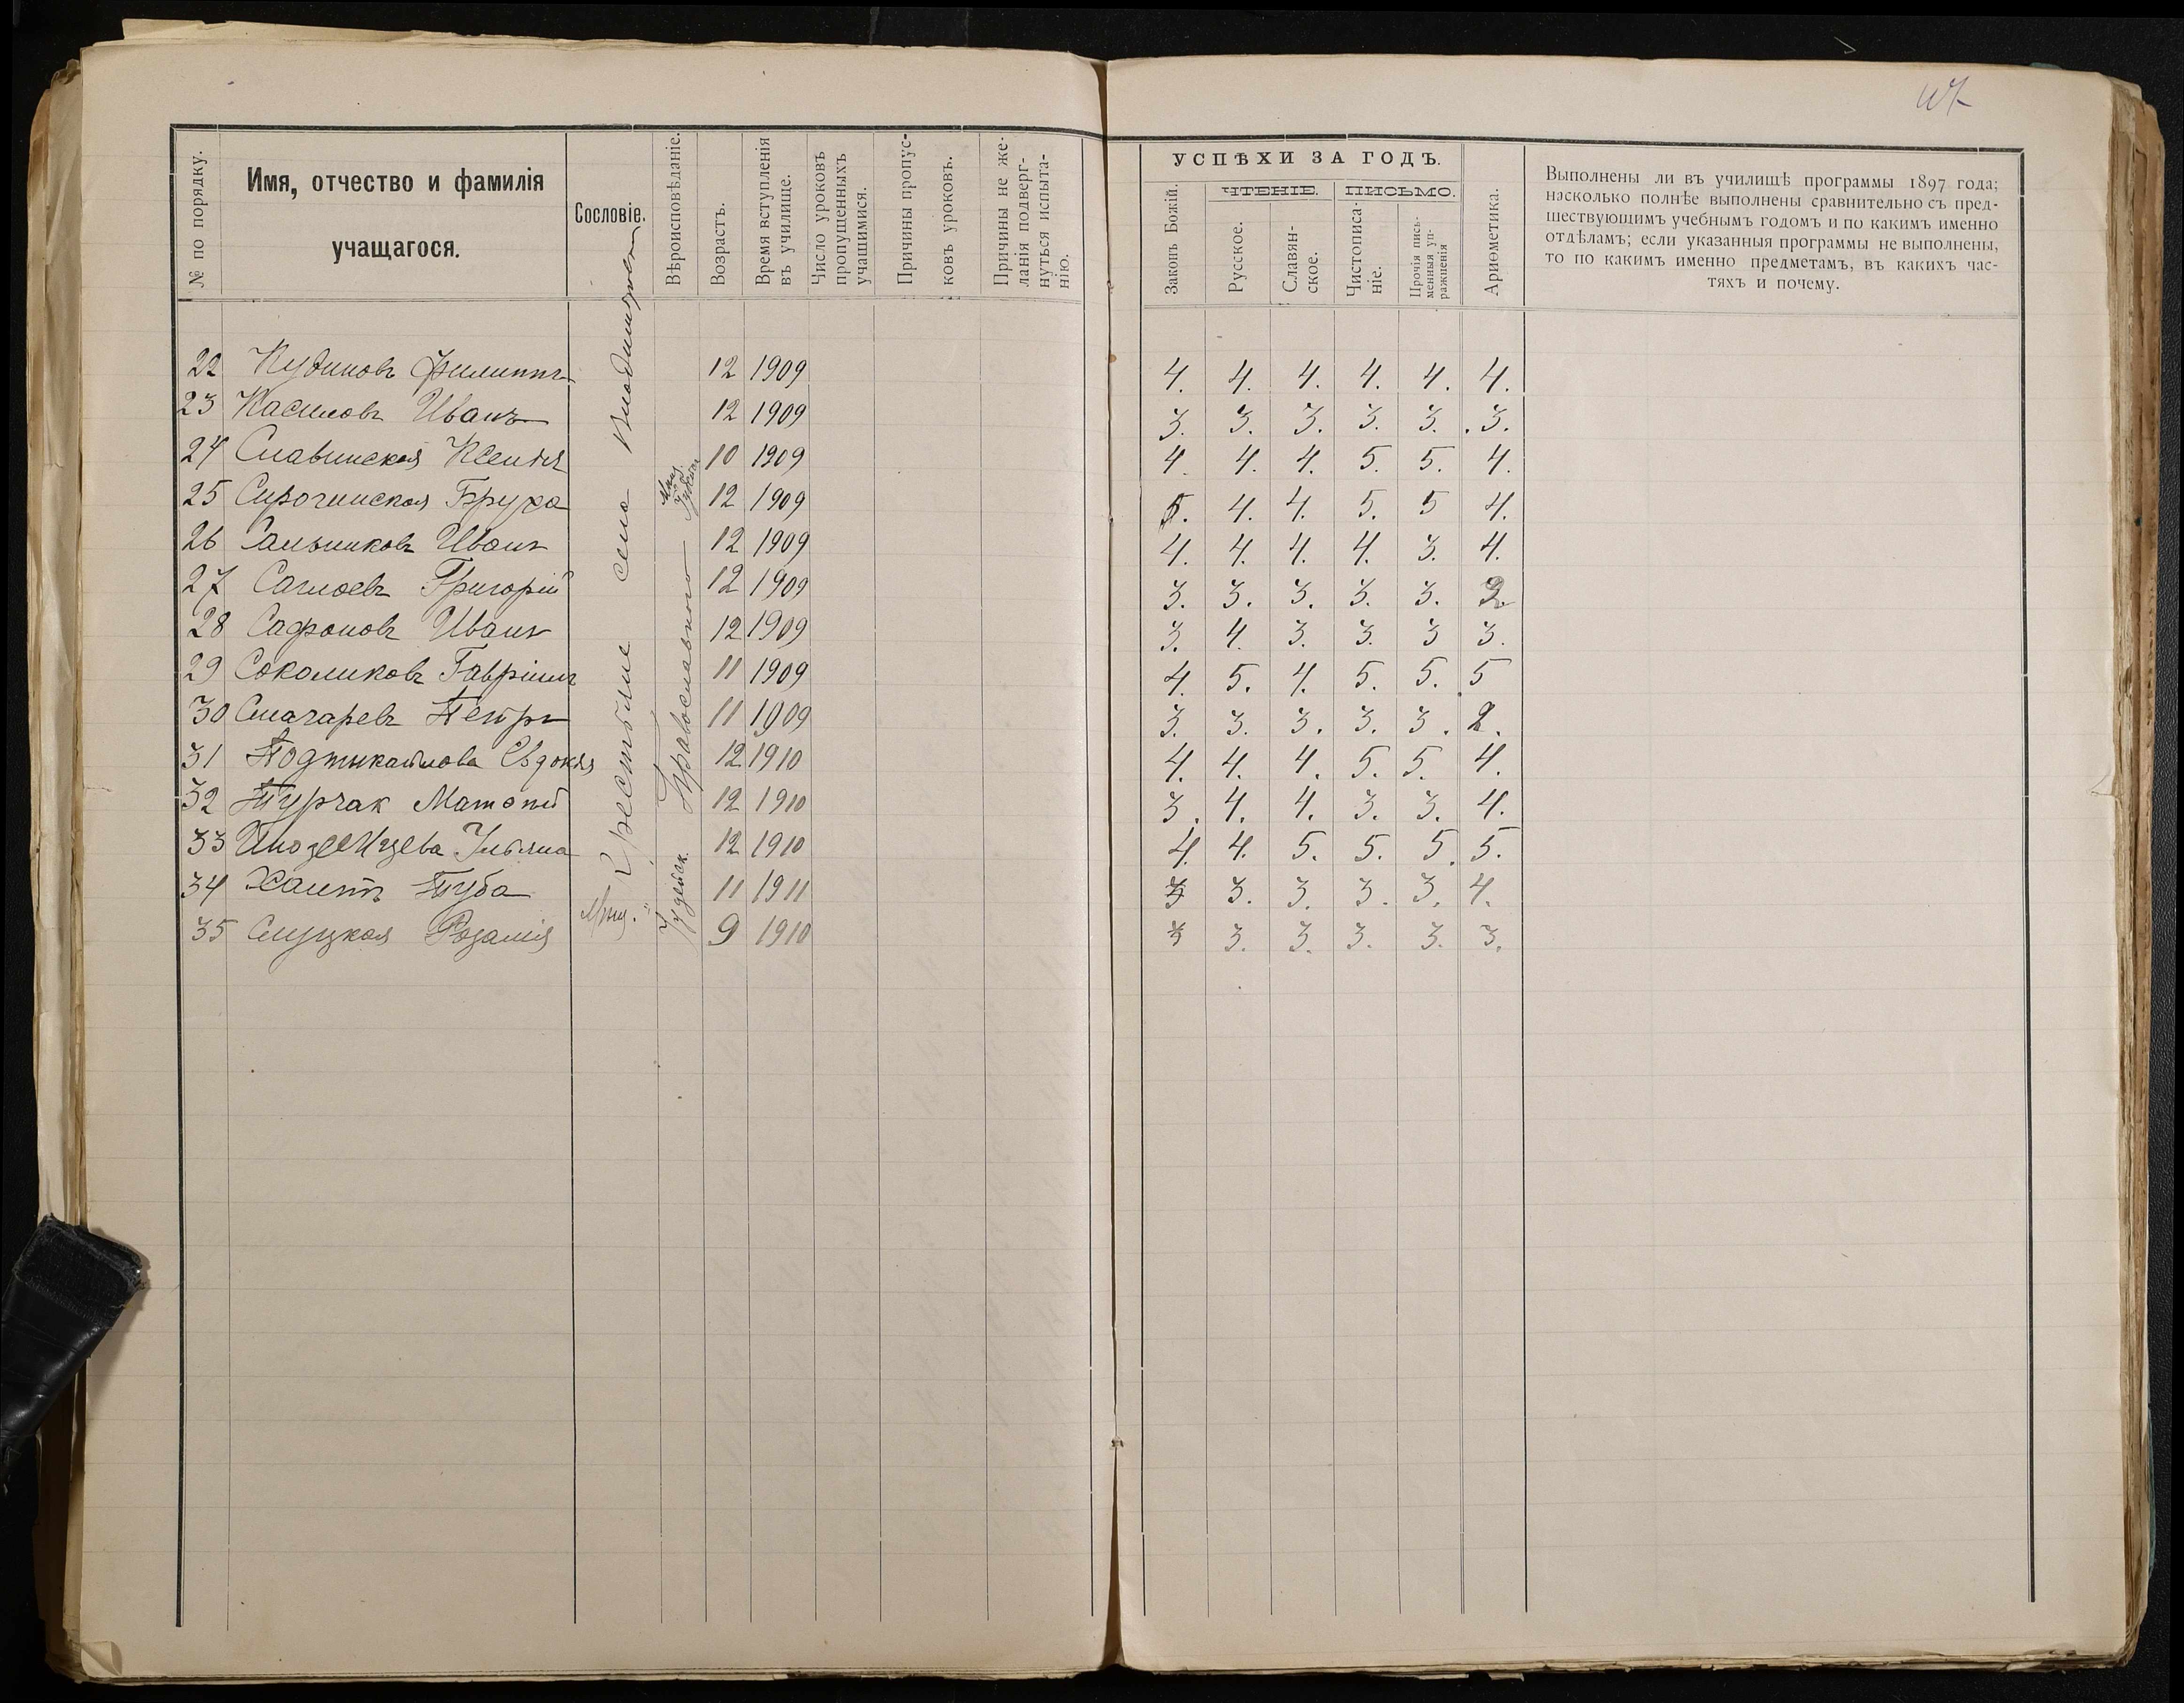 107
№ по порядку.
Имя, отчество и фамилія
учащагося.
Сословіе.
Вѣроисповѣданіе.
Возрастъ.
Время вступленія
въ училище.
Число уроковъ
пропущенныхъ
учащимися.
Причины пропус-
ковъ уроковъ.
Причины не же-
ланія подверг-
нуться испыта-
нію.
УСПѢХИ ЗА ГОДЪ.
Законъ Божій.
ЧТЕНІЕ.
Русское.
Славян-
ское.
ПИСЬМО.
Чистописа-
ніе.
Прочія пись-
менныя уп-
ражненія
Ариѳметика.
Выполнены ли въ училищѣ программы 1897 года;
насколько полнѣе выполнены сравнительно съ пред-
шествующимъ учебнымъ годомъ и по какимъ именно
отдѣламъ; если указанныя программы не выполнены,
то по какимъ именно предметамъ, въ какихъ час-
тяхъ и почему.
Крестьяне села
Православнаго
Іудейск.
Мѣщ.
22 Кудиновъ Филиппъ 12 1909 4. 4. 4. 4. 4. 4.
23 Касиловъ Иванъ 12 1909 3. 3. 3. 3. 3. 3.
24 Славинская Ксенія 10 1909 4. 4. 4. 5. 5. 4.
25 Сирочинская Бруха 12 1909 5. 4. 4. 5. 5 4.
26 Сальниковъ Иванъ 12 1909 4. 4. 4. 4. 3. 4.
27 Григорій 12 1909 3. 3. 3. 3. 3. 2
28 Сафоновъ Иванъ 12 1909 3. 4. 3. 3. 3 3.
29 Соколиковъ Гавріилъ 11 1909 4. 5. 4. 5. 5. 5
30 Слачаревъ Петръ 11 1909 3. 3. 3. 3. 3. 2.
31 Евдокія 12 1910 4. 4. 4. 5. 5. 4.
32 Турчак 12 1910 3. 4. 4. 3. 3. 4.
33 Иноземцева Ульяна 12 1910 4. 4. 5. 5. 5. 5.
34 Хаитъ Туба 11 1911 3 3. 3. 3. 3. 4.
35 Слуцкая Розалія 9 1910 3 3. 3. 3. 3. 3.